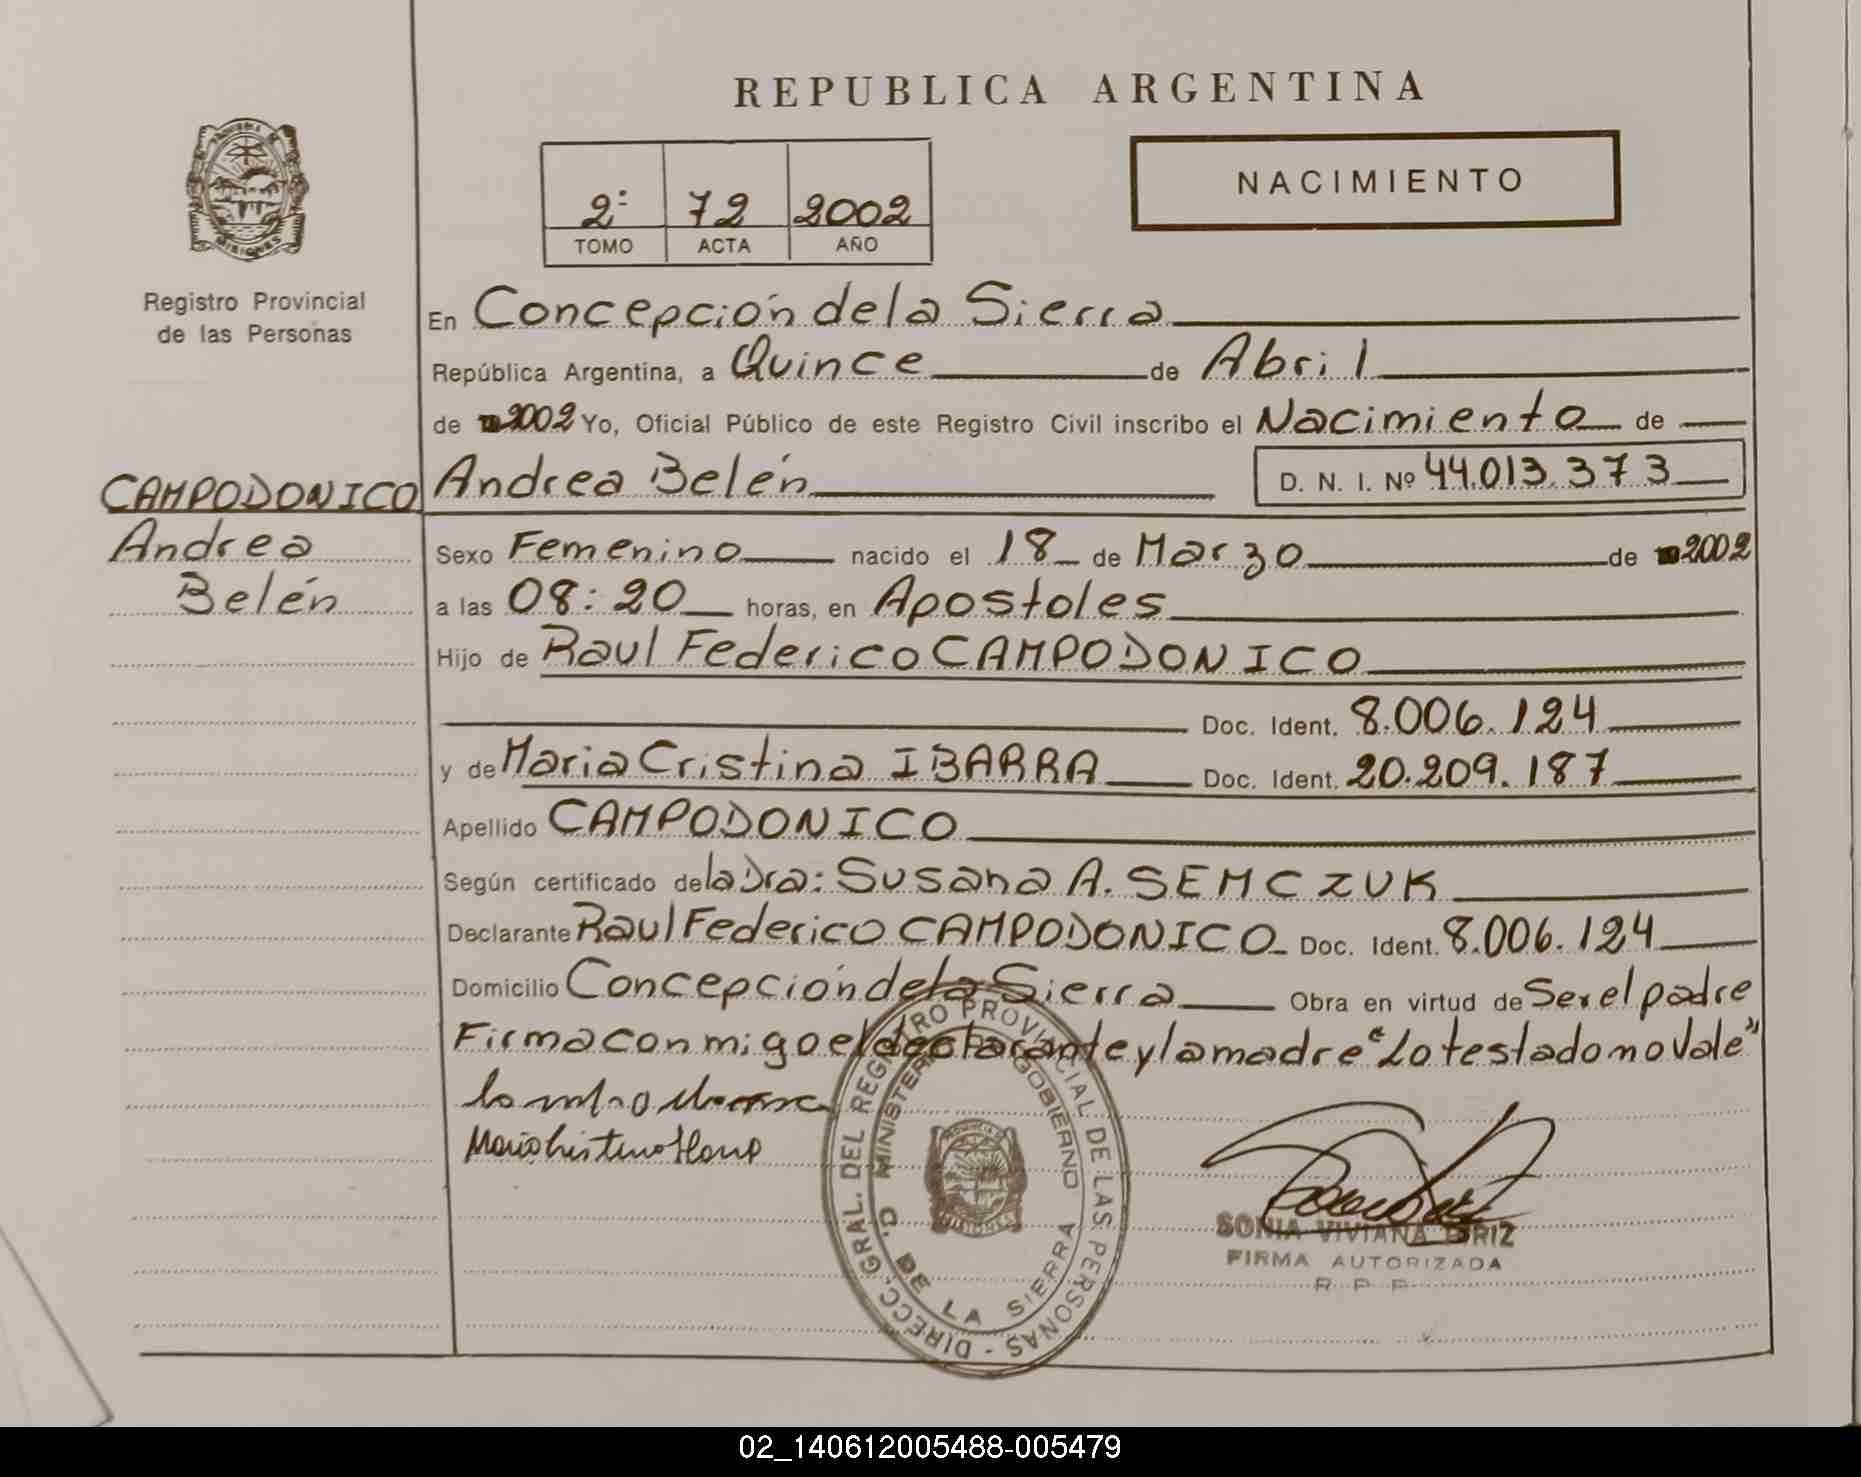 REPUBLICA ARGENTINA
NACIMIENTO
2º 72 2002
TOMO ACTA AÑO
MISIONES
Registro Provincial
de las Personas
En Concepción de la Sierra
República Argentina, a Quince de Abril
de 2002 Yo, Oficial Público de este Registro Civil inscribo el Nacimiento de
CAMPODONICO Andrea Belén D. N. I. Nº 44.013.373
Andrea
Belén
Sexo Femenino nacido el 18 de Marzo de 2002
a las 08:20 horas, en Apostoles
Hijo de Raul Federico CAMPODONICO
Doc. Ident. 8.006.124
y de Maria Cristina IBARRA Doc. Ident. 20.209.187
Apellido CAMPODONICO
Según certificado de la Dra: Susana A. SEMCZUK
Declarante Raul Federico CAMPODONICO Doc. Ident. 8.006.124
Domicilio Concepción de la Sierra Obra en virtud de Ser el padre
Firma conmigo el declarante y la madre "Lo testado no Vale"
DIRECC. GRAL. DEL REGISTRO PROVINCIAL DE LAS PERSONAS -
MINISTERIO GOBIERNO
DE LA SIERRA
MISIONES
SONIA VIVIANA
FIRMA AUTORIZADA
R. P. P.
02_140612005488-005479